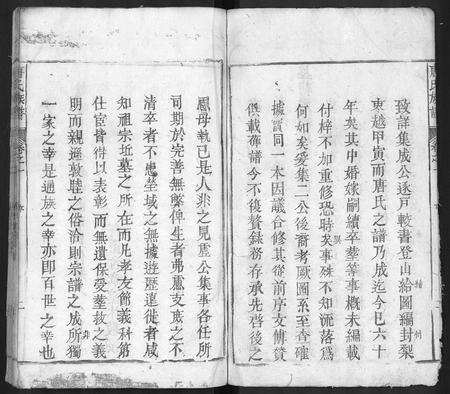 致詳集成公逐戸較書登山給圖編封梨
東越甲寅而唐氏之譜乃成迄今已六十
年矣其中婚嫁嗣續卒葬等事概未編載
付梓不加重修恐時異事殊不知流落爲
何如矣爰集二公後裔考厥圖系至當確
據實同一本因議合修其從前序文傳贊
俱載舊譜今不復贅錄務存承先啓後之
愿毋執己是人非之見處公集事各任所
司期於完善無弊俾生者弗紊支派之不
清卒者不患塋域之無據遊歷遠徙者咸
知祖宗坵墓之所在而凡孝友節義科第
仕宦皆得以表彰而無遺保受葬救之義
明而親遜敦睦之俗洽則宗譜之成所獨
一家之幸是通族之幸亦即百世之幸也
唐氏族譜
卷之一